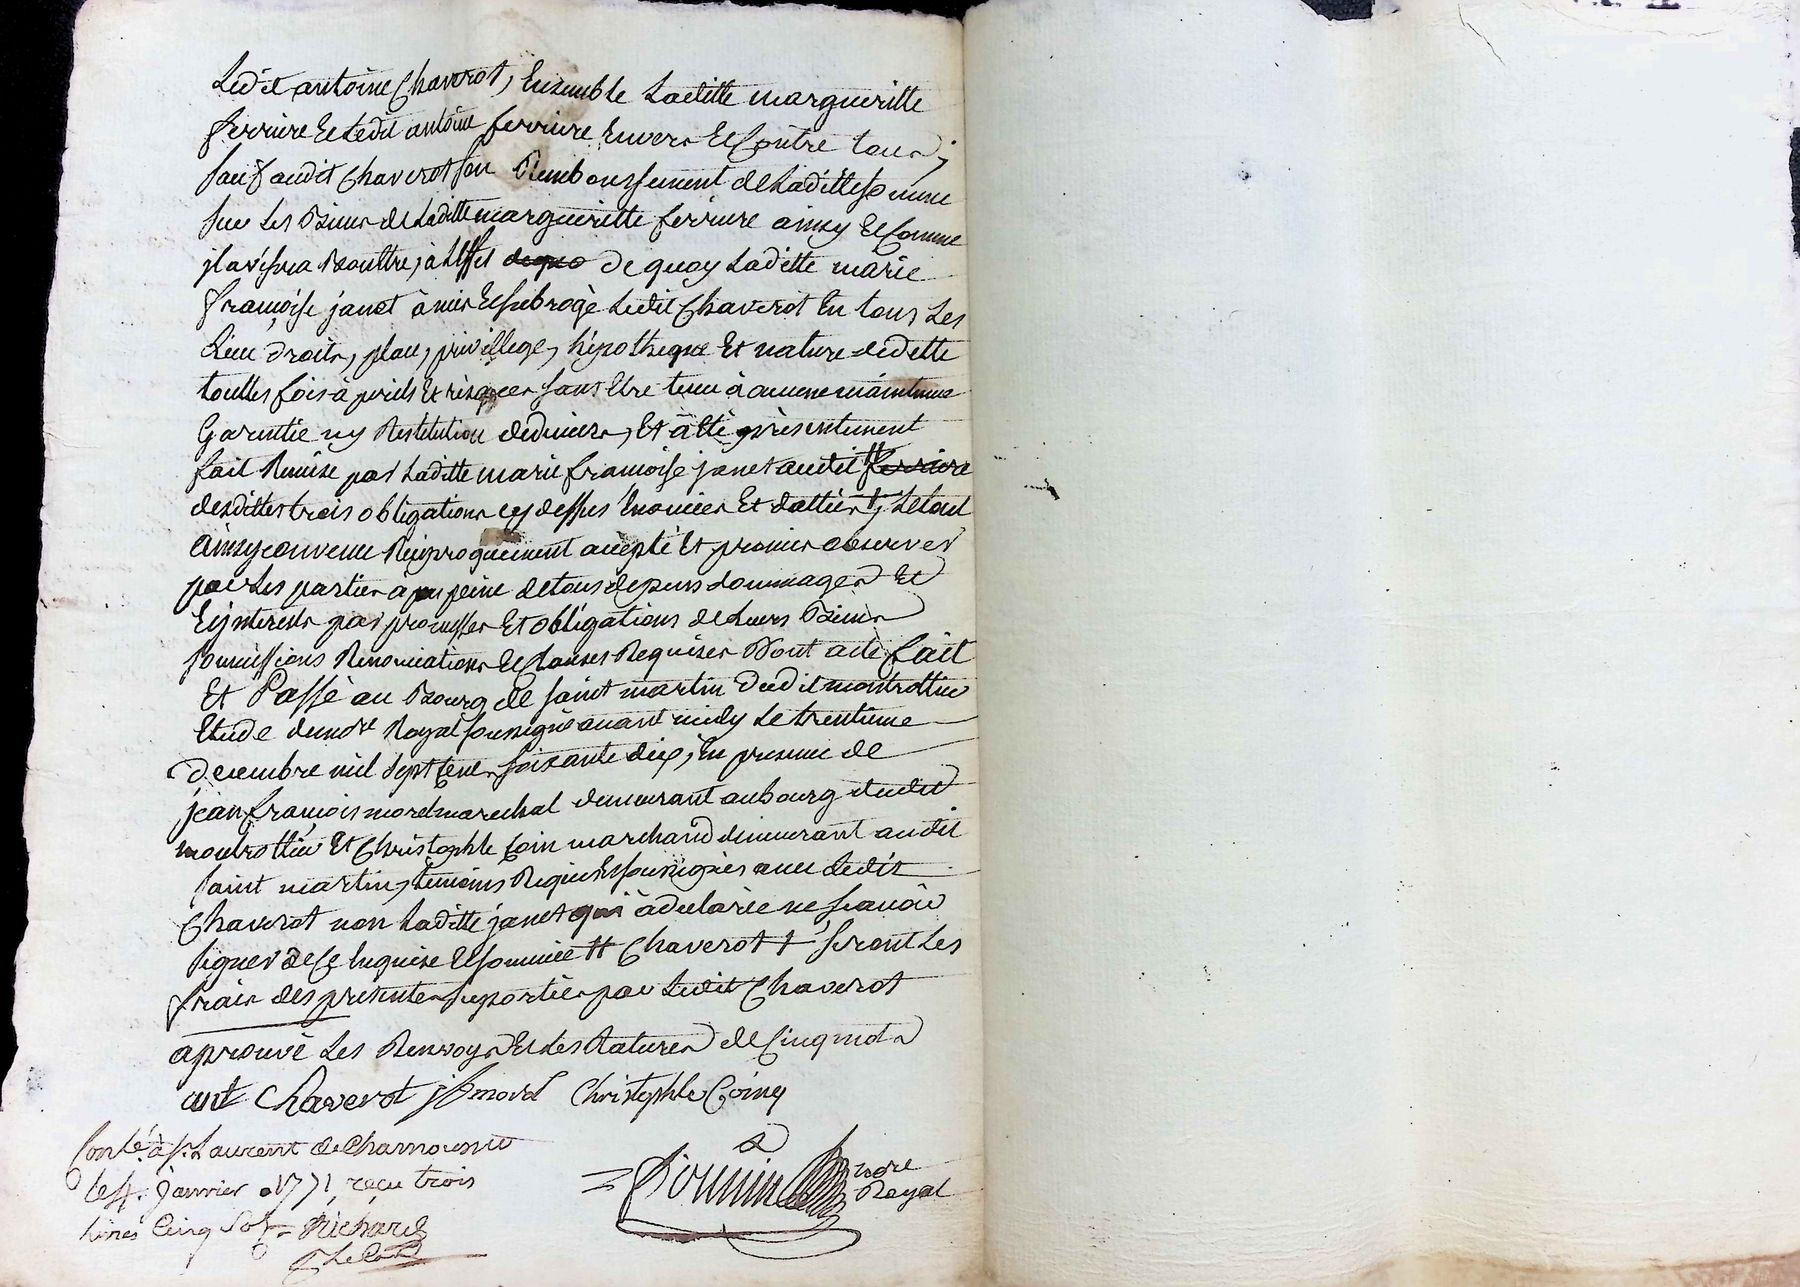 Ledit antoine Chaverot, Ensemble Laditte margueritte
ferriere Et Ledit antoine ferriere Envers Et Contre tous,
sauf audit Chaverot son Remboursement de Laditte somme
sur Les Biens de Laditte margueritte ferriere ainsy Et Comme
jl avisera Bon Estre, à Leffet de quoy Laditte marie
françoise janet à mis Et subrogé Ledit Chaverot En tous Les
Lieu droits, place, privillege, hipotheque Et nature de dette
touttes fois à perils Et risques sans Etre tenu à aucune maintenue
Garentie ny Restitution de deniers, Et à Eté présentement
fait Remise par Laditte marie françoise janet audit ferriere
desdittes trois obligations cy dessus Enoncées Et dattées, Le tout
ainsy convenu Reciproquement accepté Et promis observer
par Les parties à peine de tous depens dommages Et
Ejnterests par promesses Et obligations de Leurs Biens
soumissions Renonciations Et Clauses Requises Dont acte fait
Et Passé au Bourg de saint martin dudit montrottier
Etude du nore Royal soussigné avant midy Le trentieme
decembre mil sept Cens soixante dix, En presence de
jean françois morel marechal demeurant au bourg dudit
montrottier Et Christophle Coin marchand demeurant audit
saint martin, temoins Requis Et soussignés avec Ledit
Chaverot non Laditte janet qui à declarée ne sçavoir
signer de Ce Enquise Et sommée Chaverot seront Les
frais des presentes suportés par Ledit Chaverot
aprouvé Les Renvoys Et Les Ratures de Cinq mots
ant Chaverot jf morel Christophle Coing
Conlé. à St. Laurent de Chamousset
le 4. janvier 1771 reçu trois
livres Cinq sols Richard
nore
Royal